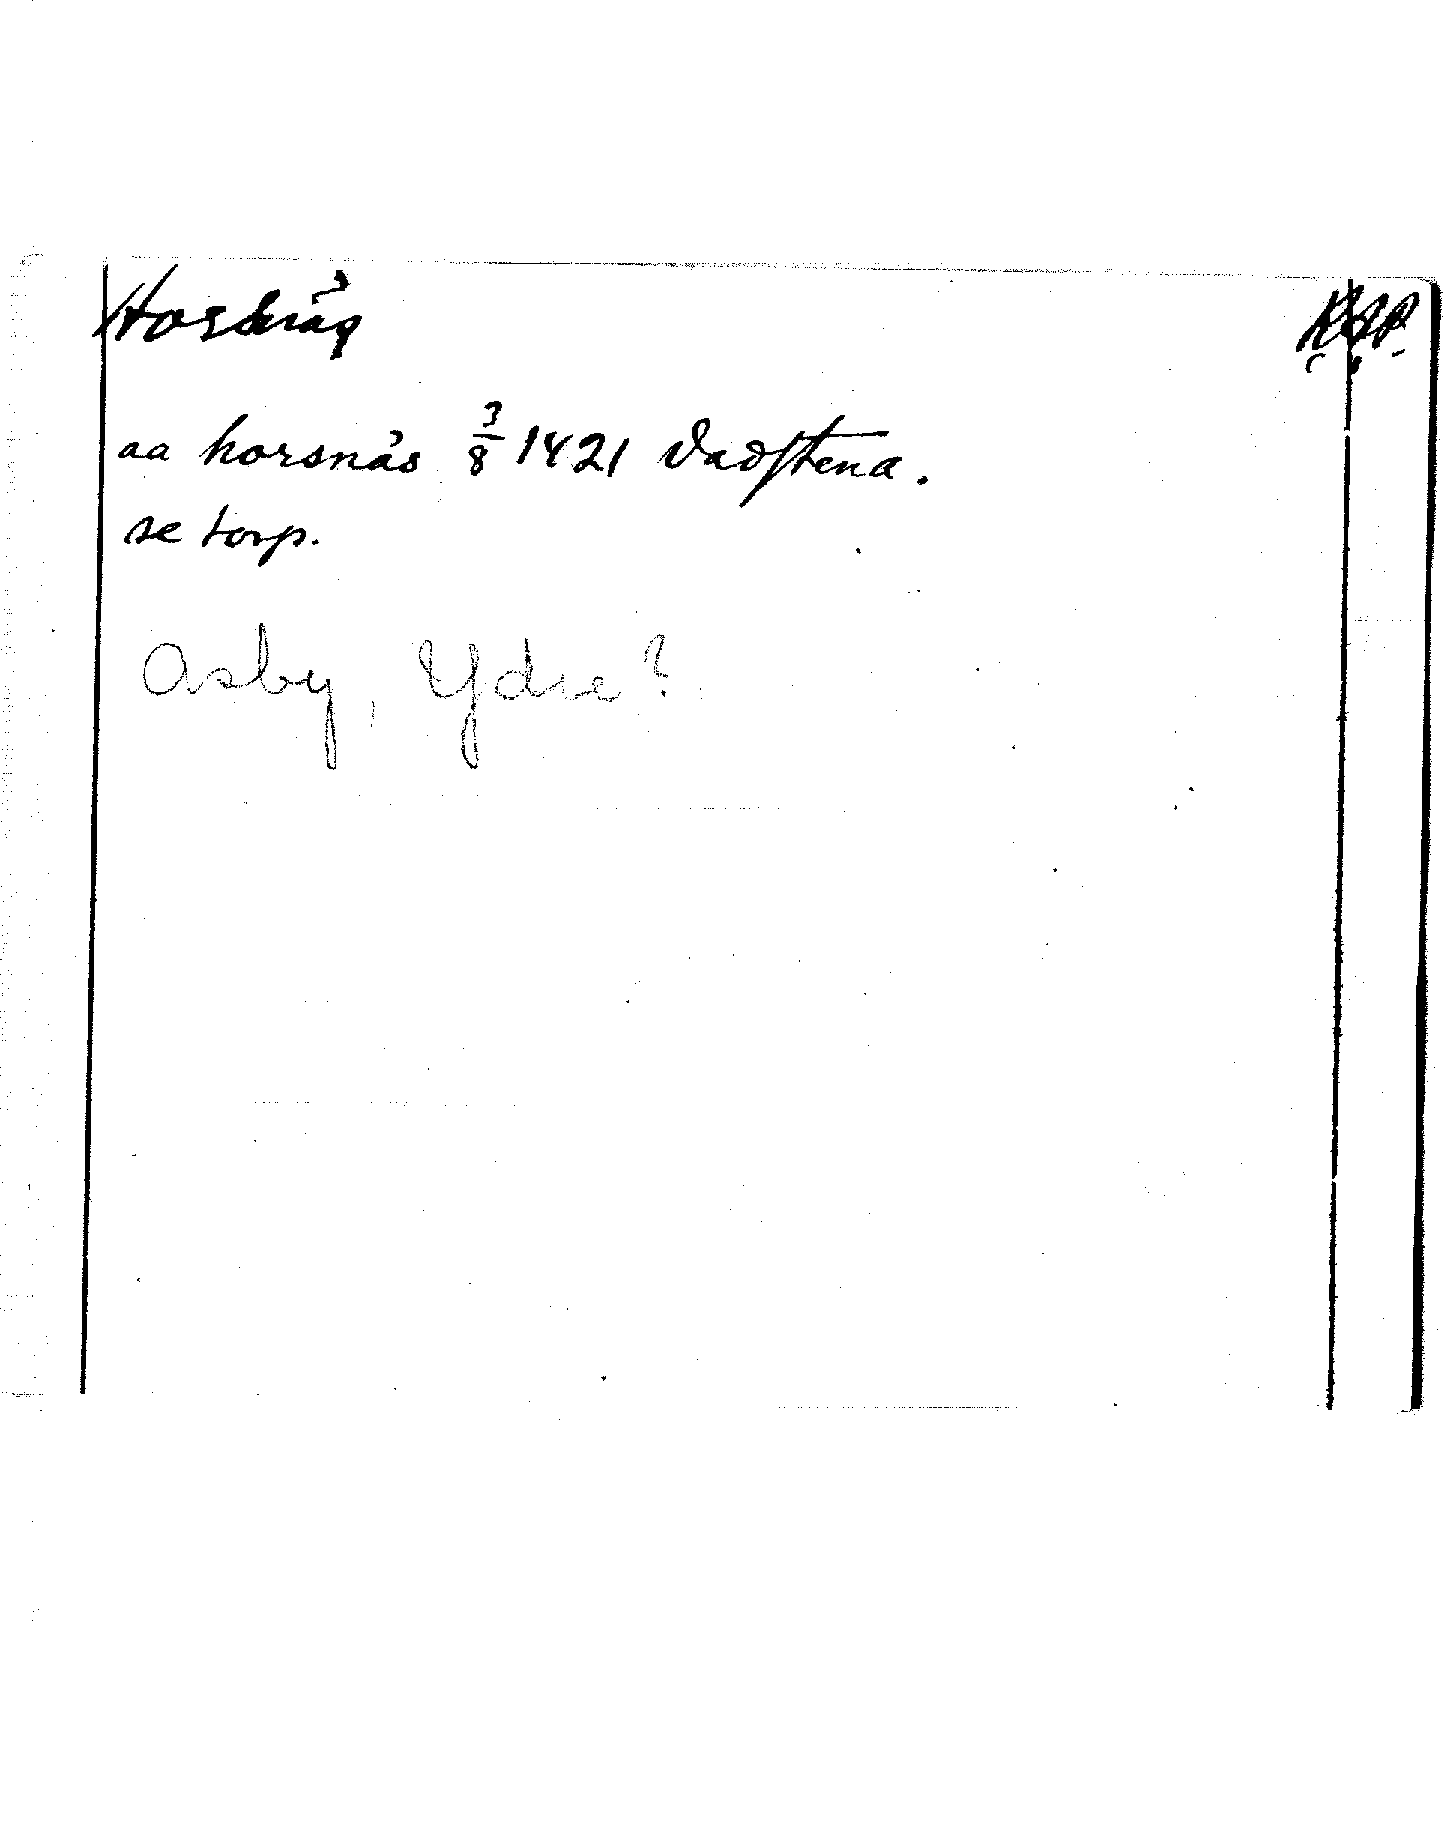 Horsnäs
R.A.P.
aa horsnäs 3/8 1421 Vadstena.
se torp.
Asby, Ydre?